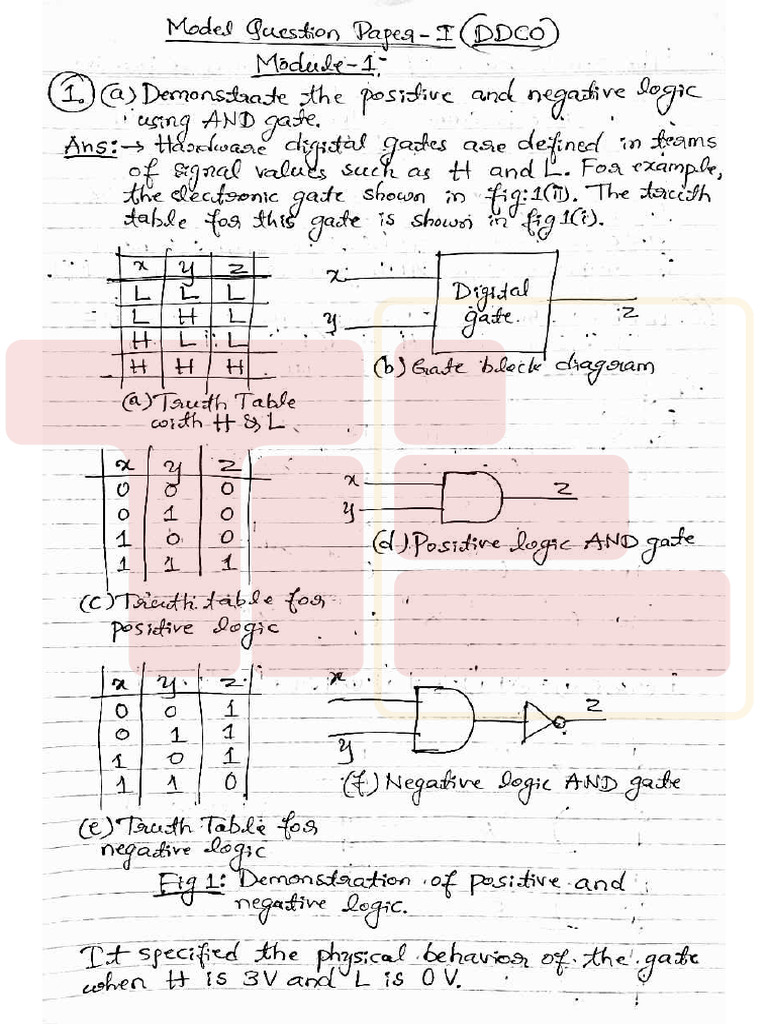 Model Question Paper-I (DDCO)
Module-1:-
1. (a) Demonstrate the positive and negative logic
using AND gate.
Ans:→ Hardware digital gates are defined in terms
of signal values such as H and L. For example,
the electronic gate shown in fig:1(ii). The truth
table for this gate is shown in fig 1(i).
x y z
L L L
L H L
H L L
H H H
(a) Truth Table
with H & L
x
y
Digital
gate.
z
(b) Gate block diagram
x y z
0 0 0
0 1 0
1 0 0
1 1 1
(c) Truth table for
positive logic
x
y
z
(d). Positive logic AND gate
x y z
0 0 1
0 1 1
1 0 1
1 1 0
(e) Truth Table for
negative logic
x
y
z
(f.) Negative logic AND gate
Fig 1: Demonstration of positive and
negative logic.
It specified the physical behavior of the gate
when H is 3V and L is 0V.